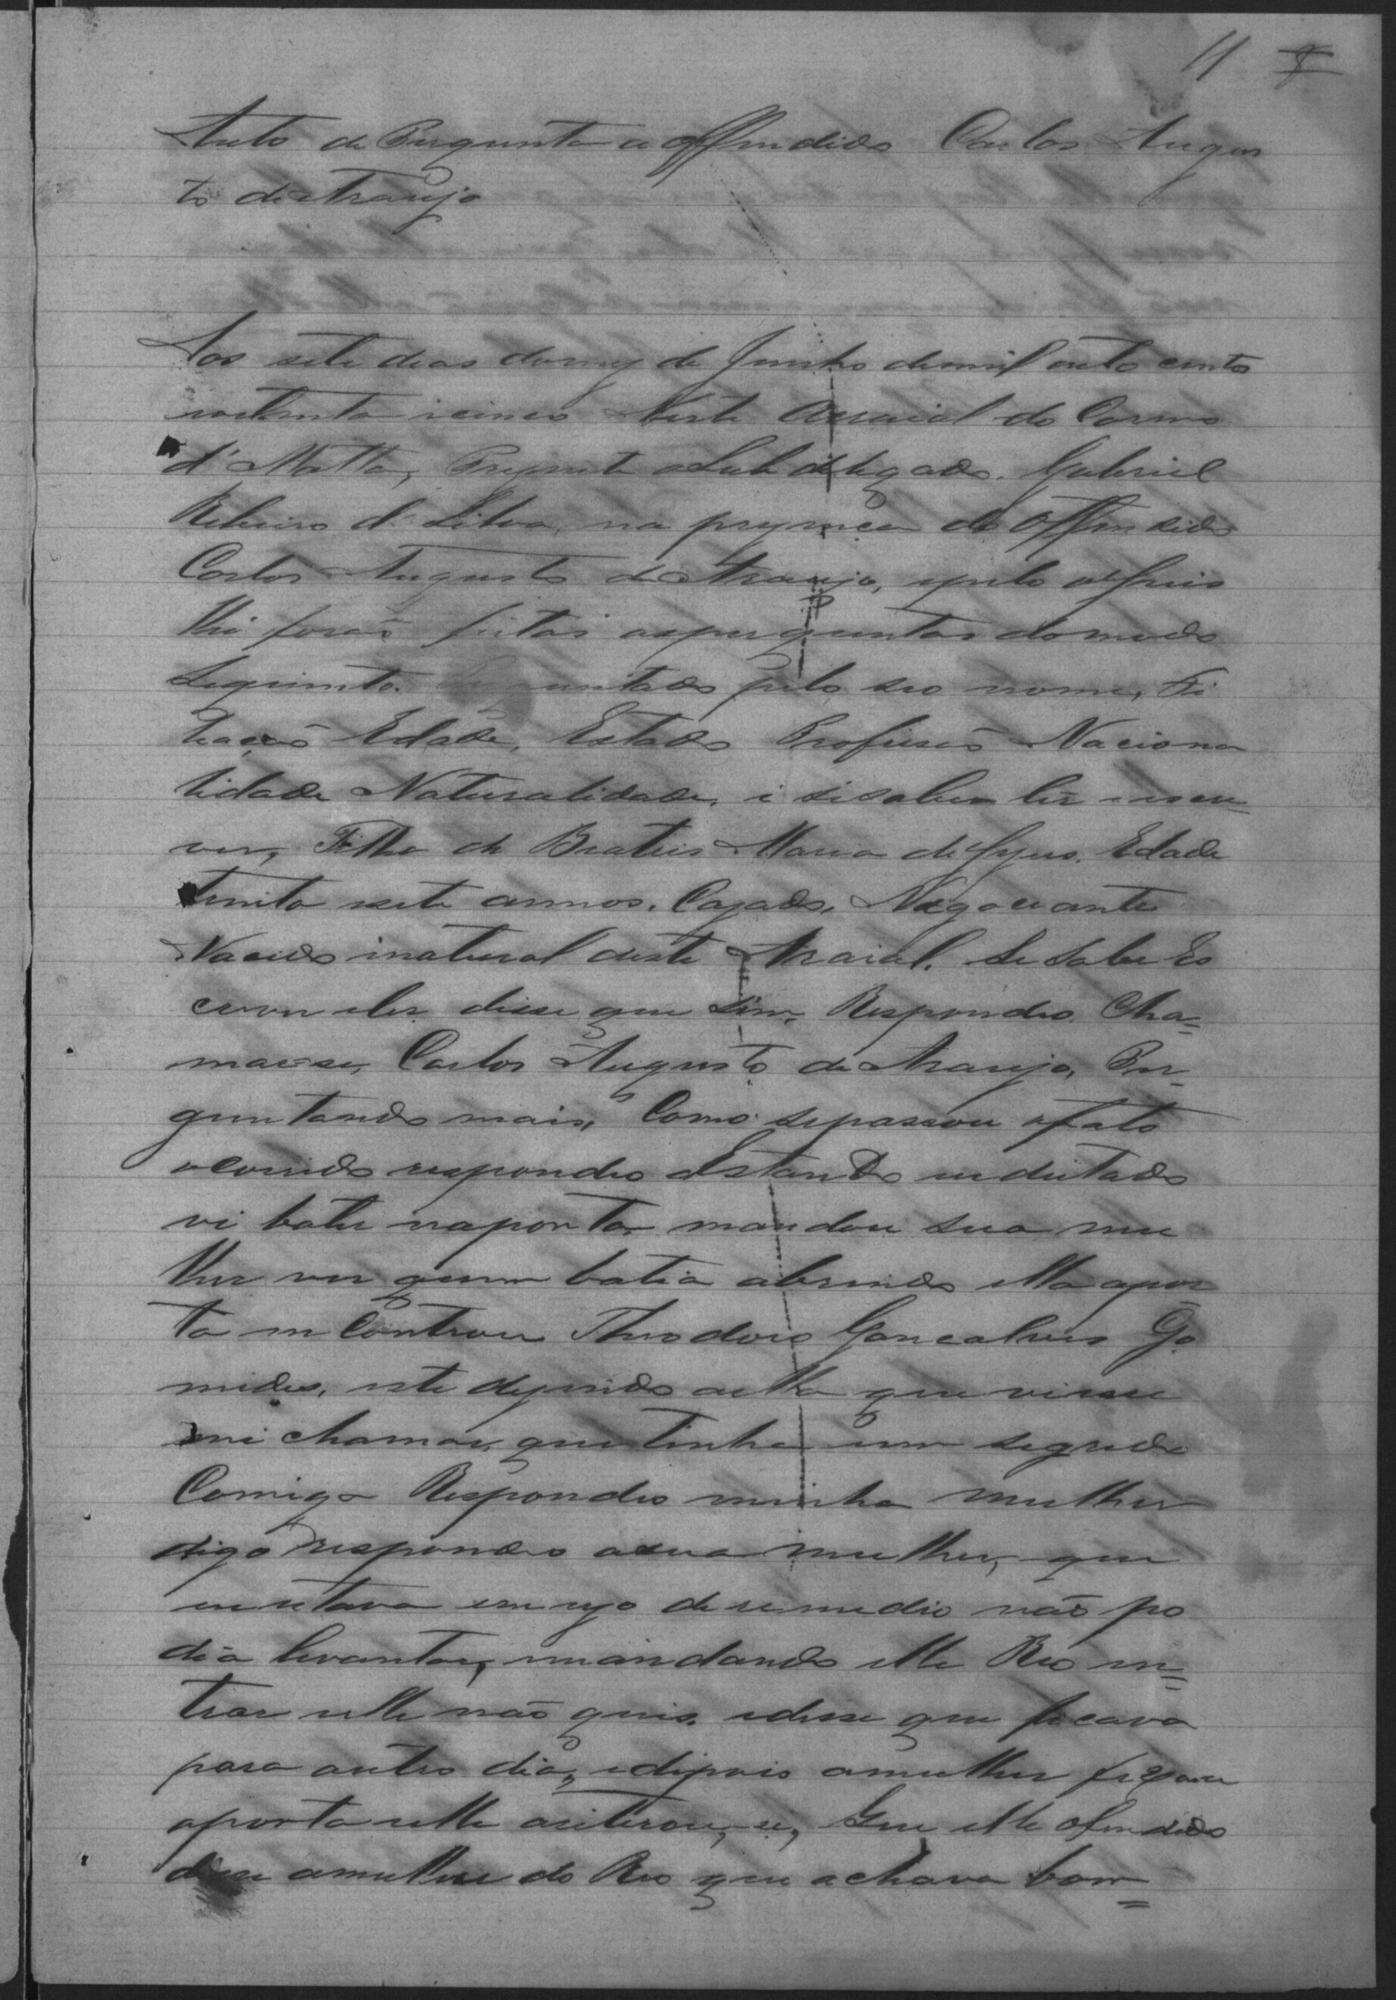 11
Auto de Pergunta a offendido Carlos Augus
to de Araujo
Aos sete dias domez de Junho demil oito centos
e oitenta i cinco Neste Arraial do Carmo
d' Matta, Prezente o Sub delegado. Gabriel
Ribeiro d. Silva, na prezença do Offendido
Carlos Augusto de Araujo, epelo o Juis
lhi forão feitas asperguntas do modo
Seguinte. untado pelo seo nome, Fi
liação Edade, Estado Profiscão Naciona
lidade Naturalidade, i sisabem lêr e escre
ver, Filho de Beatris Maria de Jezus. Edade
trinta esete annos. Cazado, Negociante
Nacido inatural deste Araial. Se sabe Es
crever eler disse que Sim. Respondeo Cha-
marse, Carlos Augusto de Araujo, Per-
guntando mais, Como sepassou ofato
ocorrido respondeo Estando ia deitado
vi bater naporta, mandou sua mu
lher ver quem batia abrindo ella apor
ta in Controu Theodoro Goncalves Go
mides, este depindo aella que viesse
mi chamar, que tinha um segredo
Comigo Respondeo minha mulher
digo respondeo asua mulher, que
eu estava em uzo de remedio não po
dia levantar, mandando elle Reo en=
trar elle não quis. edisse que ficava
para outro dia, edipois amulher fexou
aporta elle asitirou, se, Que elle ofendido
disse amulher do Reo que achava bom=